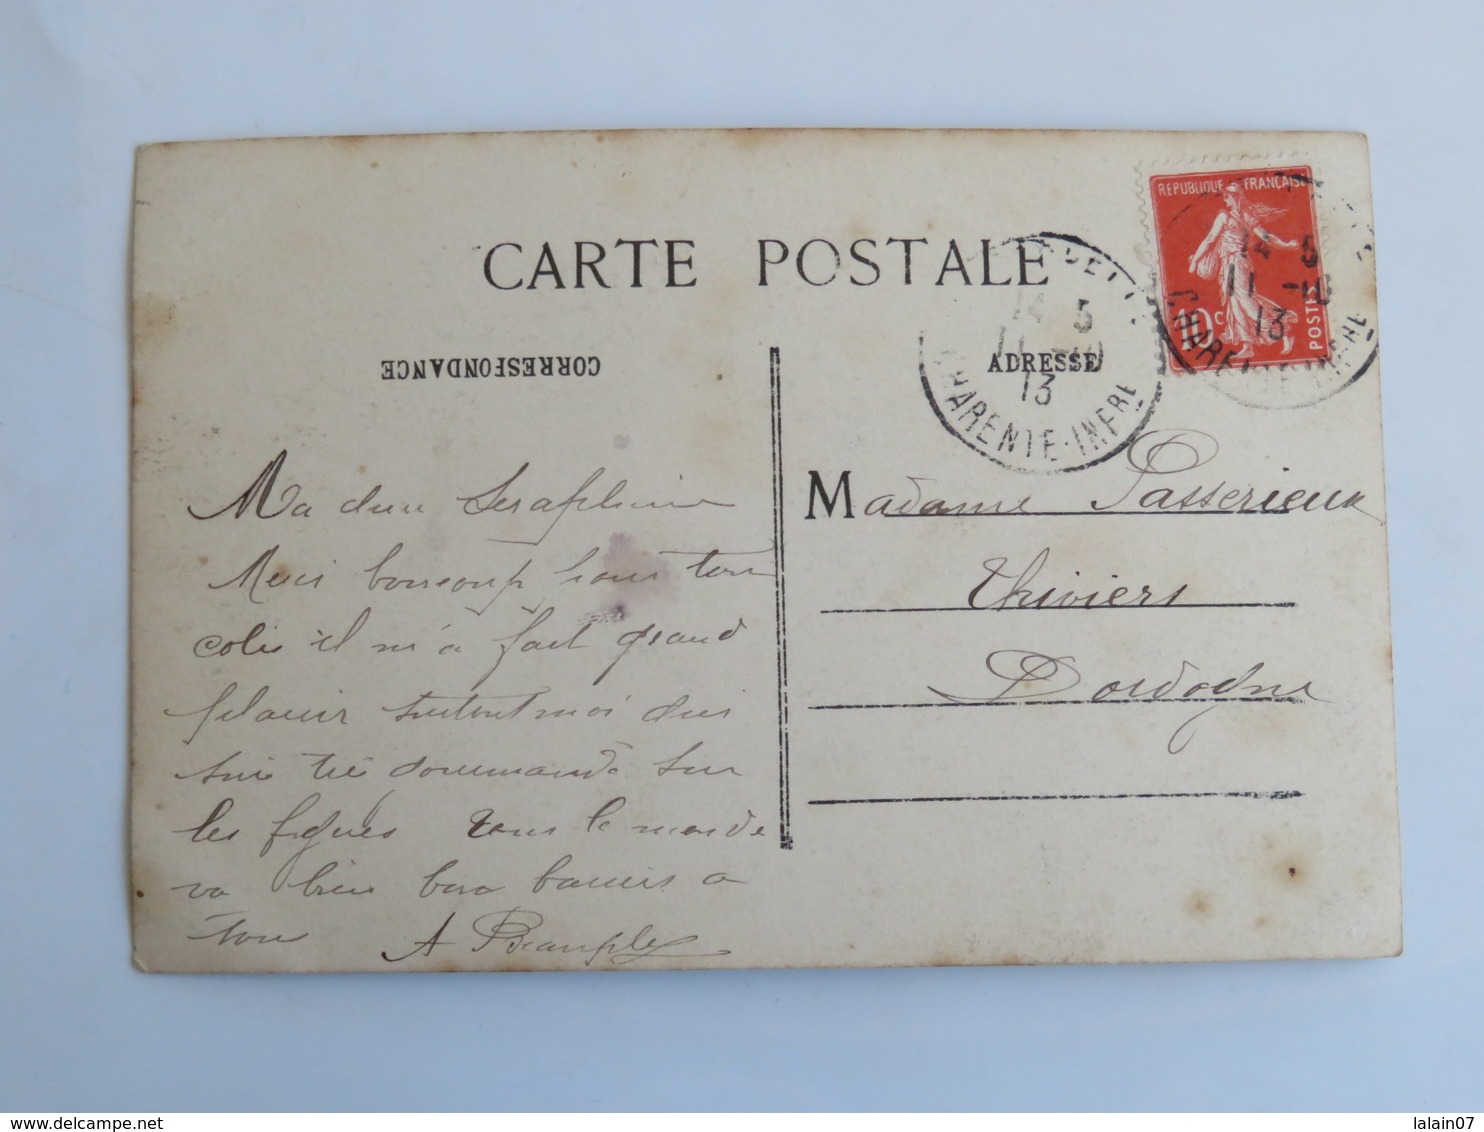 CARTE POSTALE
CORRESFONDANCE
ADRESSE
REPUBLIQUE FRANÇAISE
10c
POSTES
14 5
11 -10
13
CHARENTE-INFRE
14 5
11 -10
13
Ma cher Seraphine
Merci boucoup pour ton
colis il m'a fait grand
plaisir surtout moi qui
suis tré gourmande sur
les figues tous le monde
va bien bon baisers a
tous A Beauply
Madame Passerieux
Thiviers
Dordogne
lalain07